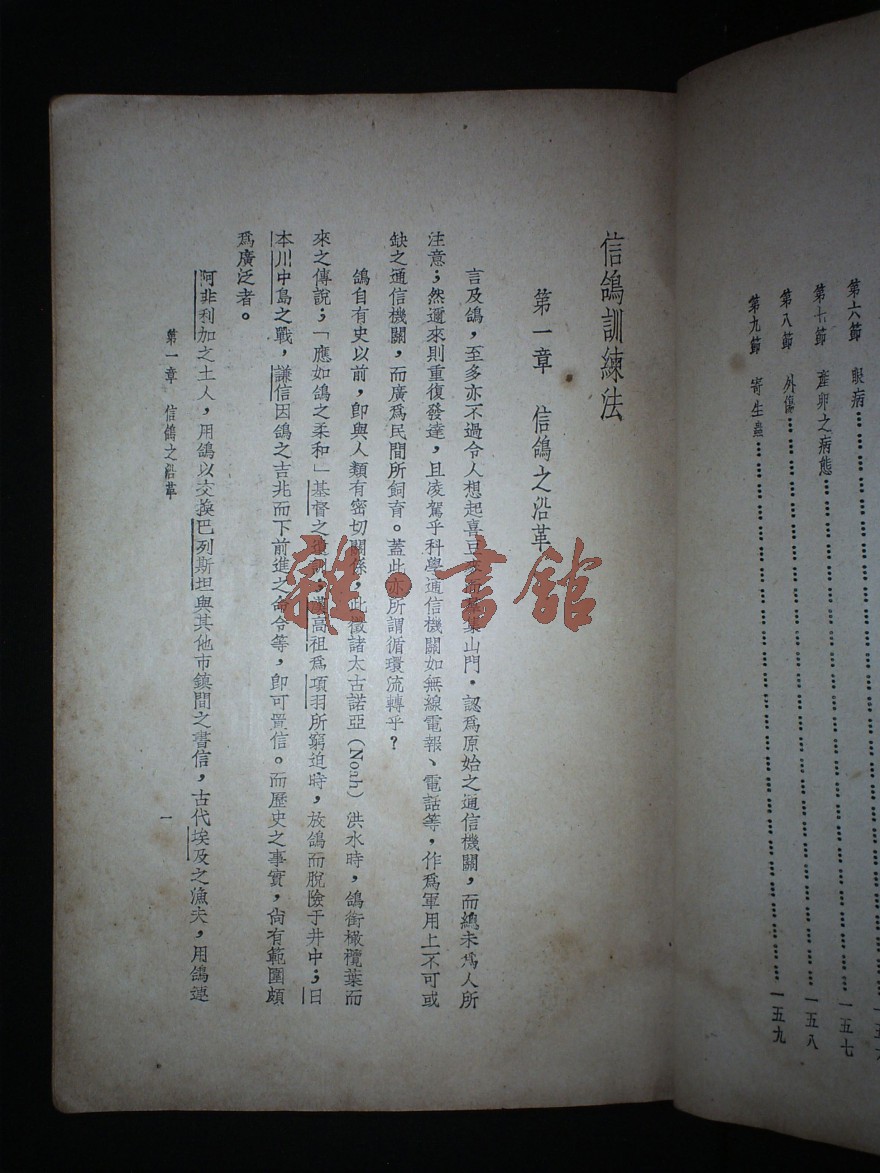 第六節 眼病……一五六
第七節 產卵之病態……一五七
第八節 外傷……一五八
第九節 寄生蟲……一五九
信鴿訓練法
第一章 信鴿之沿革
言及鴿，至多亦不過令人想起喜豆 山門．認爲原始之通信機關，而總未爲人所
注意；然邇來則重復發達，且凌駕乎科學通信機關如無線電報、電話等，作爲軍用上不可或
缺之通信機關，而廣爲民間所飼育。蓋此亦所謂循環流轉乎？
鴿自有史以前，卽與人類有密切關係，此徵諸太古諾亞（Noah）洪水時，鴿銜橄欖葉而
來之傳說；「應如鴿之柔和」基督之 漢高祖爲項羽所窮迫時，放鴿而脫險于井中；日
本川中島之戰，謙信因鴿之吉兆而下前進之命令等，卽可置信。而歷史之事實，尙有範圍頗
爲廣泛者。
阿非利加之土人，用鴿以交換巴列斯坦與其他市鎮間之書信，古代埃及之漁夫，用鴿連
第一章 信鴿之沿革
一
雜·書館